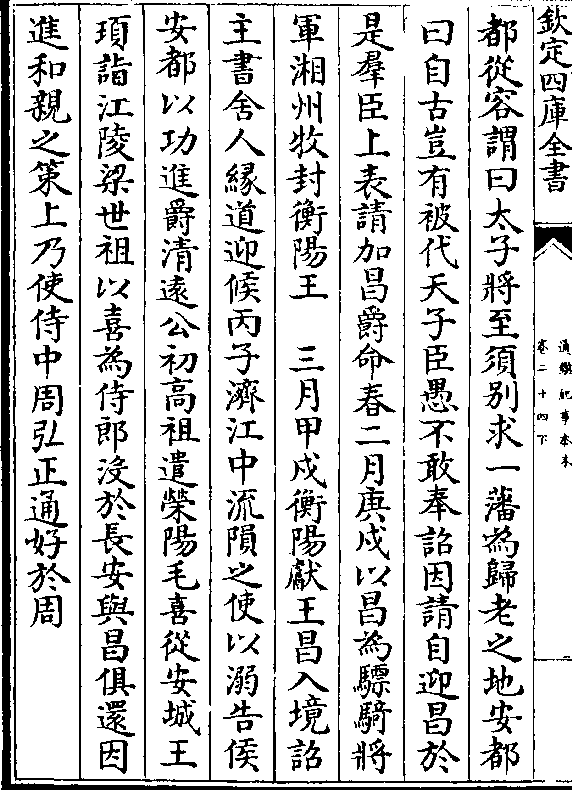 欽定四庫全書
通鑑紀事本末
卷二十四下
都從容謂曰太子將至須別求一藩為歸老之地安都
曰自古豈有被代天子臣愚不敢奉詔因請自迎昌於
是羣臣上表請加昌爵命春二月庚戌以昌為驃騎將
軍湘州牧封衡陽王　三月甲戌衡陽獻王昌入境詔
主書舍人緣道迎候丙子濟江中流隕之使以溺告侯
安都以功進爵清遠公初高祖遣榮陽毛喜從安城王
頊詣江陵梁世祖以喜為侍郎沒於長安與昌俱還因
進和親之策上乃使侍中周弘正通好於周